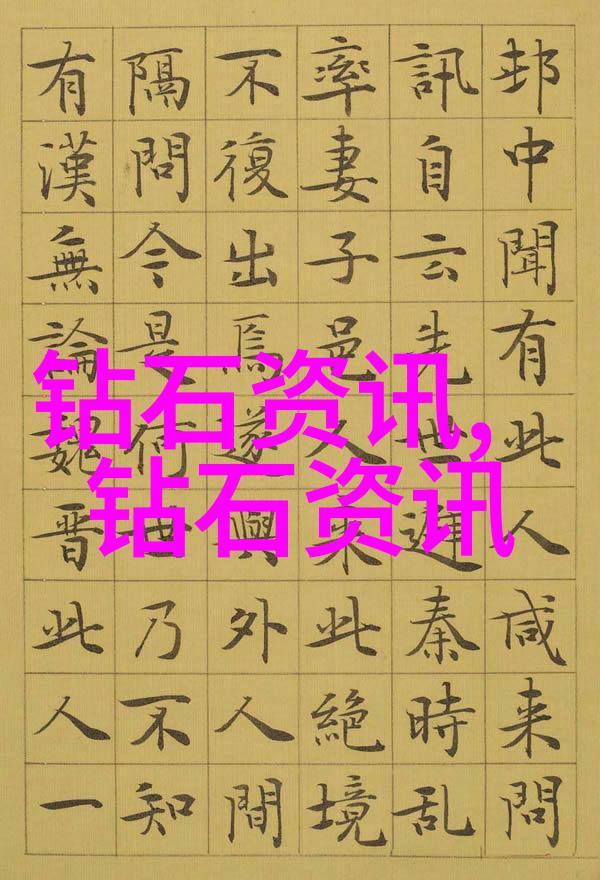 邨中聞有此人咸来問
訊自云先世避秦時乱
率妻子邑人来此絶境
不復出焉遂與外人間
隔問今是何世乃不知
有漢無論魏晋此人一
钻石资讯,
钻石资讯